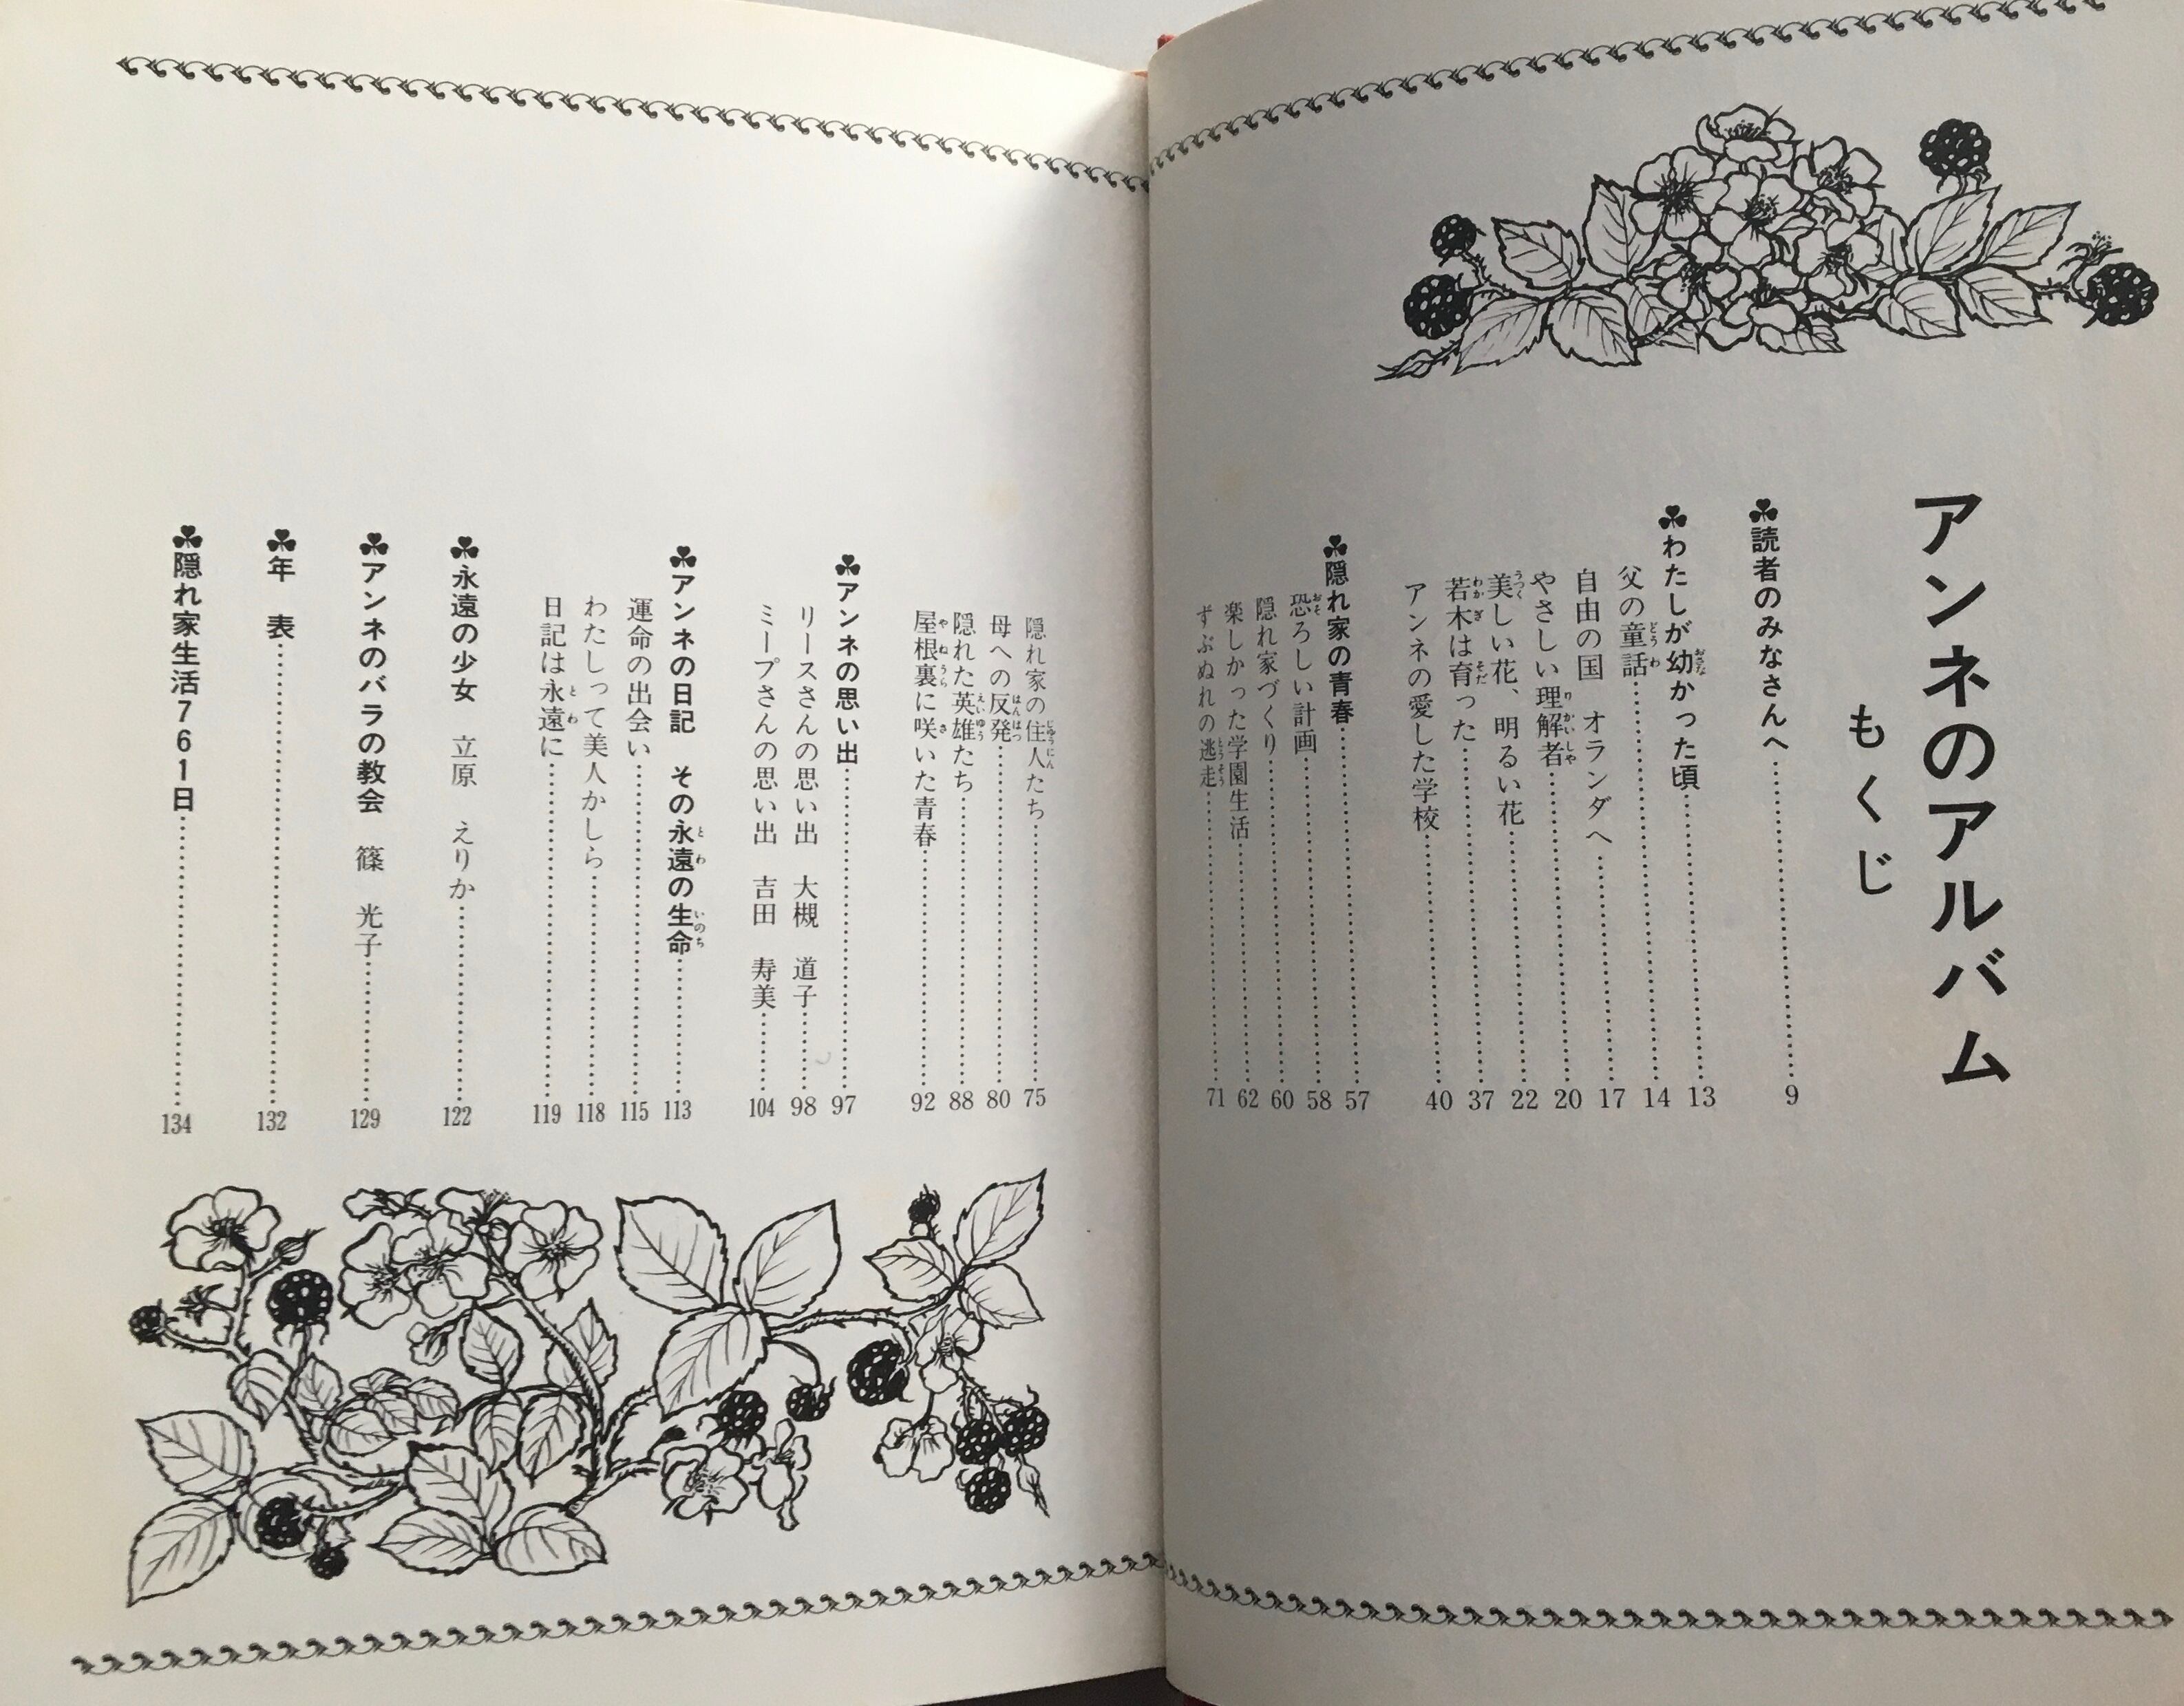 アンネのアルバム
もくじ
♣読者のみなさんへ……9
♣わたしが幼かった頃……13
父の童話……14
自由の国　オランダへ……17
やさしい理解者……20
美しい花、明るい花……22
若木は育った……37
アンネの愛した学校……40
♣隠れ家の青春……57
恐ろしい計画……58
隠れ家づくり……60
楽しかった学園生活……62
ずぶぬれの逃走……71
隠れ家の住人たち……75
母への反発……80
隠れた英雄たち……88
屋根裏に咲いた青春……92
♣アンネの思い出……97
リースさんの思い出　大槻　道子……98
ミープさんの思い出　吉田　寿美……104
♣アンネの日記　その永遠の生命……113
運命の出会い……115
わたしって美人かしら……118
日記は永遠に……119
♣永遠の少女　立原　えりか……122
♣アンネのバラの教会　篠　光子……129
♣年　表……132
♣隠れ家生活761日……134